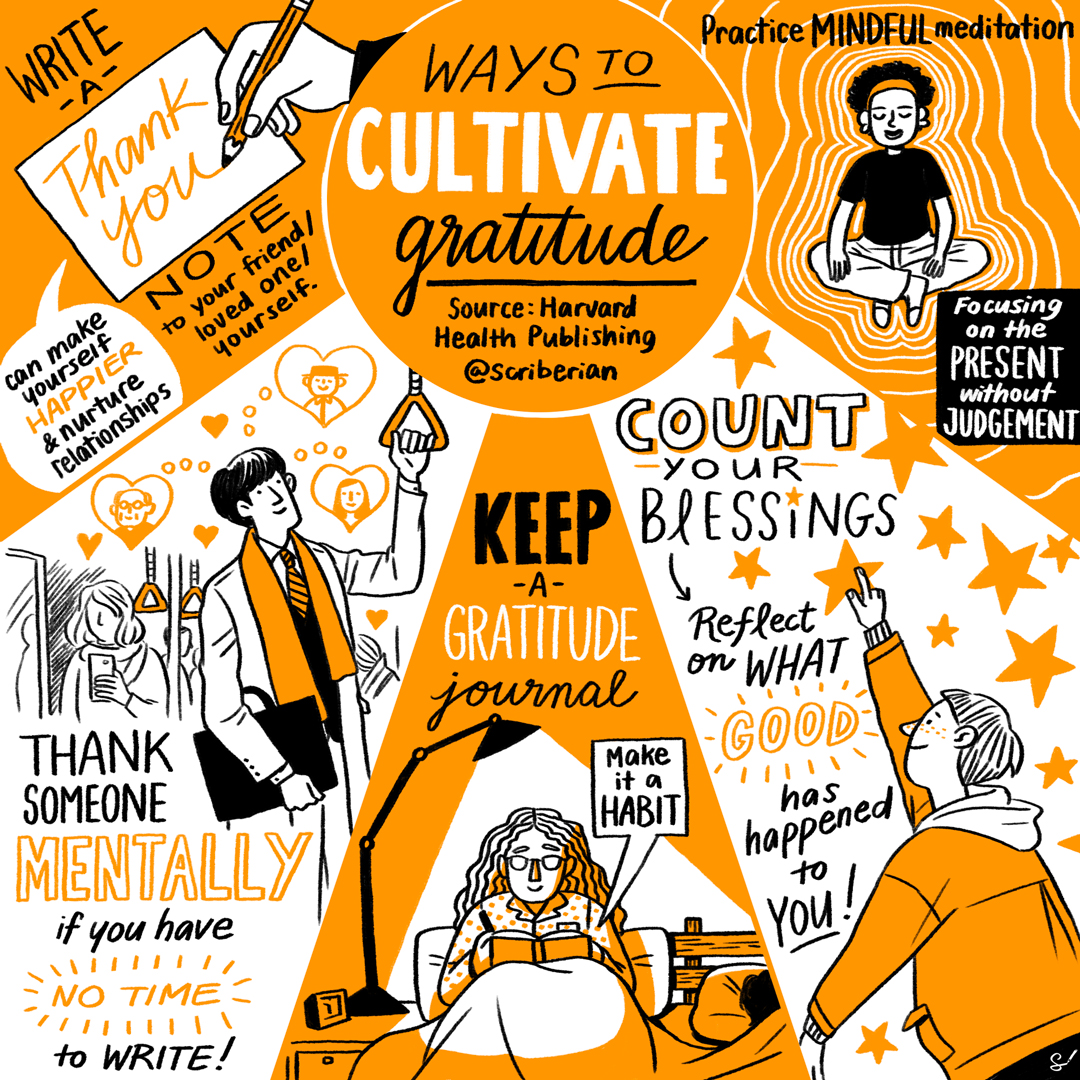 WAYS TO
CULTIVATE
gratitude
Source: Harvard
Health Publishing
@scriberian
WRITE
-A-
Thank
you
NOTE
to your friend/
loved one/
yourself.
can make
yourself
HAPPIER
& nurture
relationships
Practice MINDFUL meditation
Focusing
on the
PRESENT
without
JUDGEMENT
THANK
SOMEONE
MENTALLY
if you have
NO TIME
to WRITE!
KEEP
-A-
GRATITUDE
journal
Make
it a
HABIT
COUNT
YOUR
BlESSiNGS
Reflect
on WHAT
GOOD
has
happened
to
YOU!